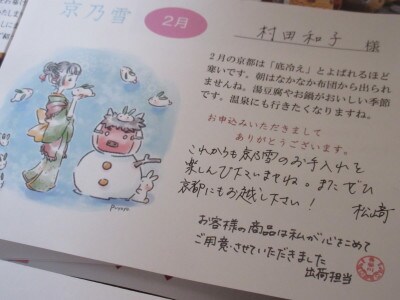 京乃雪
2月
村田和子 様
2月の京都は「底冷え」とよばれるほど
寒いです。朝はなかなか布団から出られ
ませんね。湯豆腐やお鍋がおいしい季節
です。温泉にも行きたくなりますね。
お申込みいただきまして
ありがとうございます。
これからも京乃雪のお手入れを
楽しんで下さいませね。またぜひ
京都にもお越し下さい！
松﨑
お客様の商品は私が心をこめて
ご用意させていただきました
出荷担当